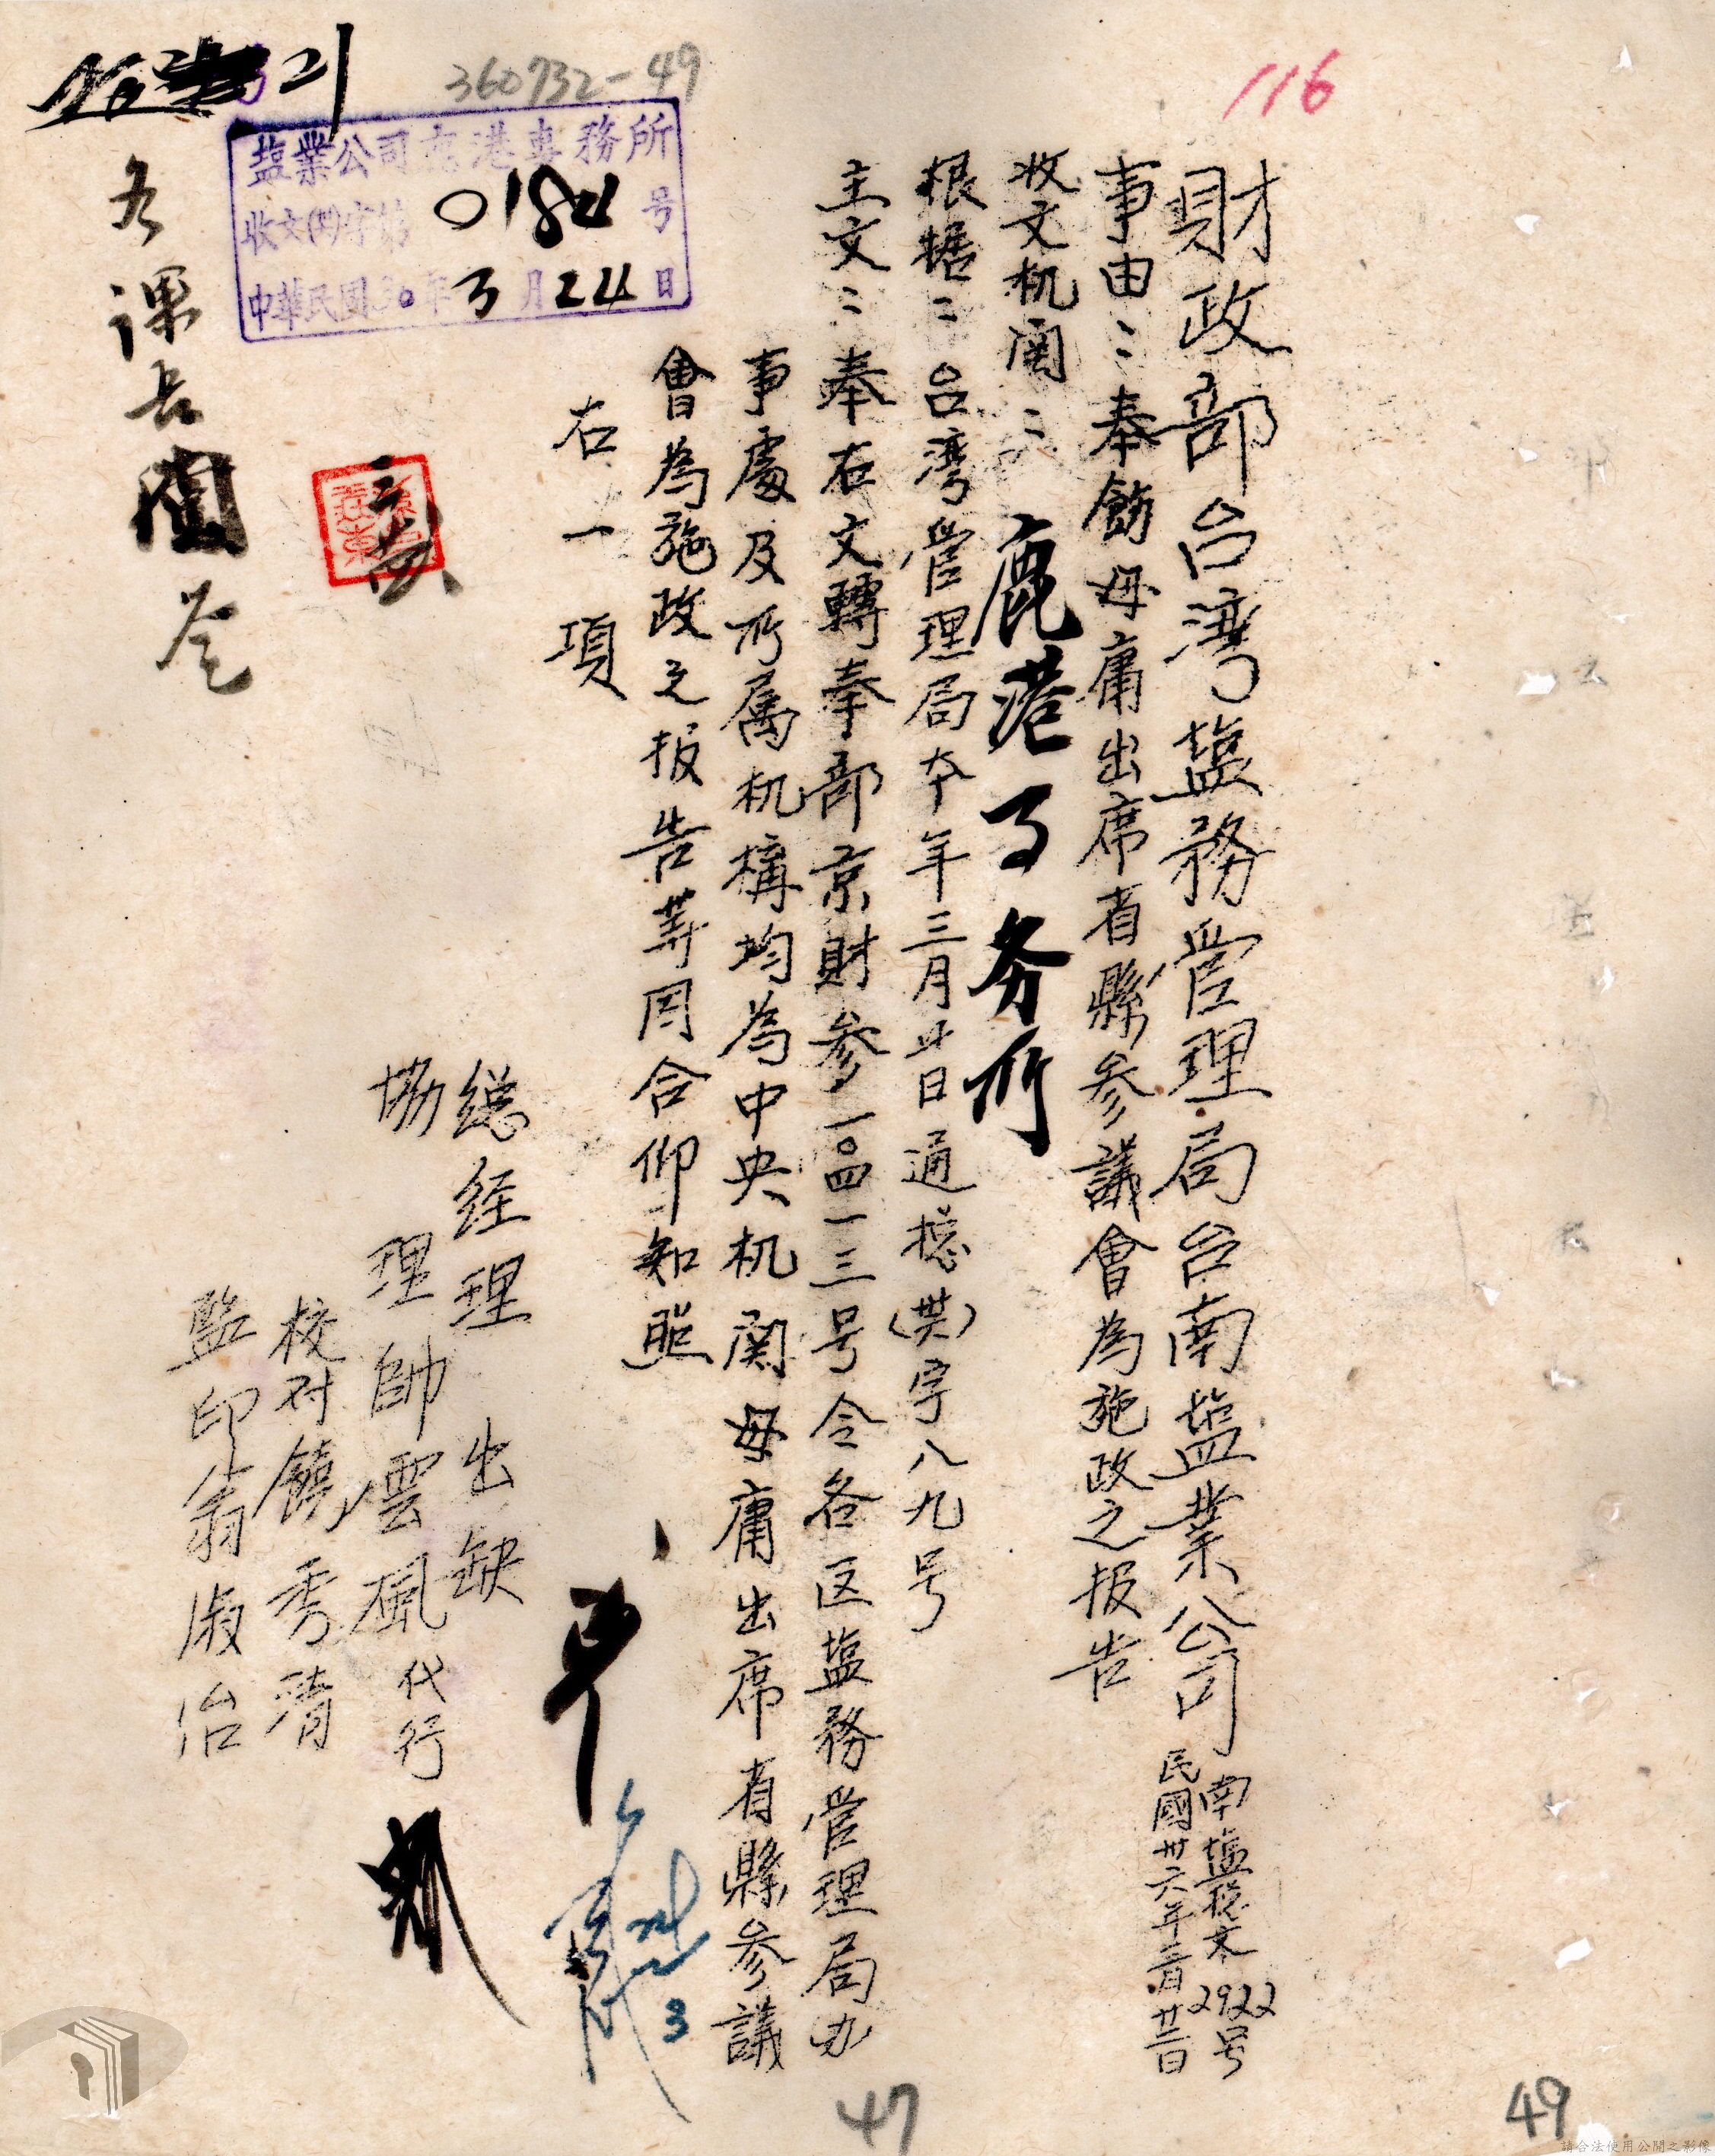 116
財政部台湾塩務管理局台南塩業公司
南塩総文2922号
民國卅六年三月廿二日
事由：奉飭毋庸出席省縣参議會為施政之报告
收文机関：鹿港了务所
根据：台湾管理局本年三月廿日通総（卅六）字八九号
主文：奉右文轉奉部京財参一〇四一三号令各区塩務管理局办
事處及所属机構均為中央机関毋庸出席省縣参議
會為施政之报告等因合仰知照
右一項
総经理 出缺
協理 帥雲風 代行
校对 饒秀清
監印 翁淑治
360732-49
塩業公司鹿港事務所
收文(卅)字第0184号
中華民國36年3月24日
各課長閱
47
49
請合法使用公開之影像